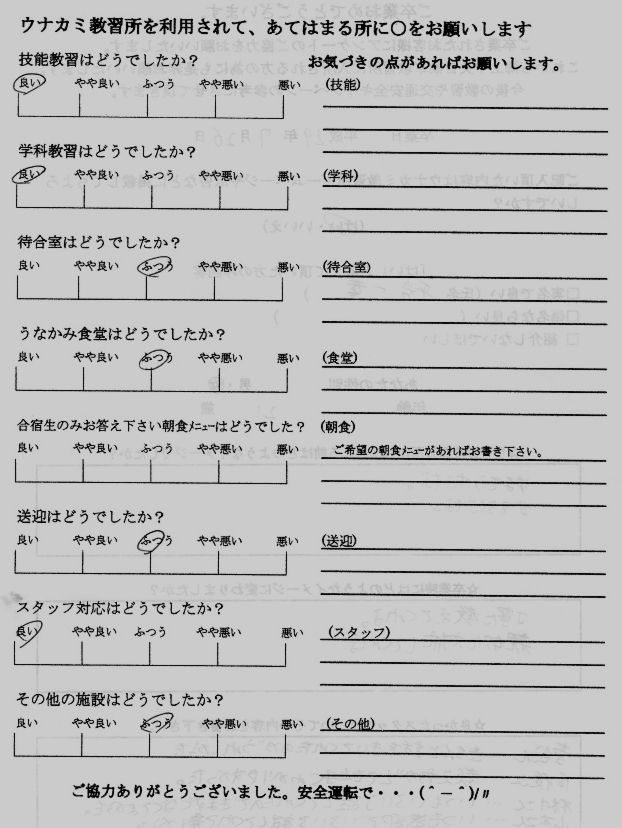 ウナカミ教習所を利用されて、あてはまる所に〇をお願いします
技能教習はどうでしたか？
お気づきの点があればお願いします。
良い やや良い ふつう やや悪い 悪い (技能)
学科教習はどうでしたか？
良い やや良い ふつう やや悪い 悪い (学科)
待合室はどうでしたか？
良い やや良い ふつう やや悪い 悪い (待合室)
うなかみ食堂はどうでしたか？
良い やや良い ふつう やや悪い 悪い (食堂)
合宿生のみお答え下さい朝食ﾒﾆｭｰはどうでした？ (朝食)
良い やや良い ふつう やや悪い 悪い ご希望の朝食ﾒﾆｭｰがあればお書き下さい。
送迎はどうでしたか？
良い やや良い ふつう やや悪い 悪い (送迎)
スタッフ対応はどうでしたか？
良い やや良い ふつう やや悪い 悪い (スタッフ)
その他の施設はどうでしたか？
良い やや良い ふつう やや悪い 悪い (その他)
ご協力ありがとうございました。安全運転で・・・(＾－＾)/〃